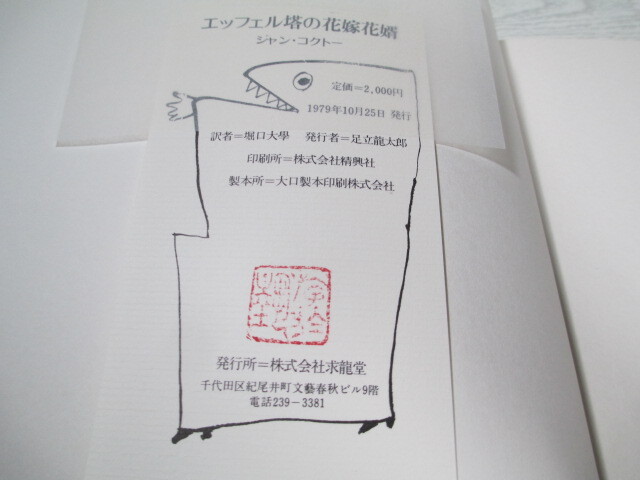 エッフェル塔の花嫁花婿
ジャン・コクトー
定価＝2,000円
1979年10月25日 発行
訳者＝堀口大學　発行者＝足立龍太郎
印刷所＝株式会社精興社
製本所＝大口製本印刷株式会社
発行所＝株式会社求龍堂
千代田区紀尾井町文藝春秋ビル9階
電話239－3381